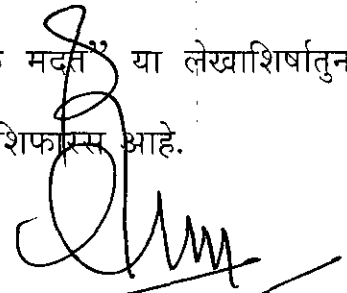 मदत” या लेखाशिर्षातुन
शिफारस आहे.